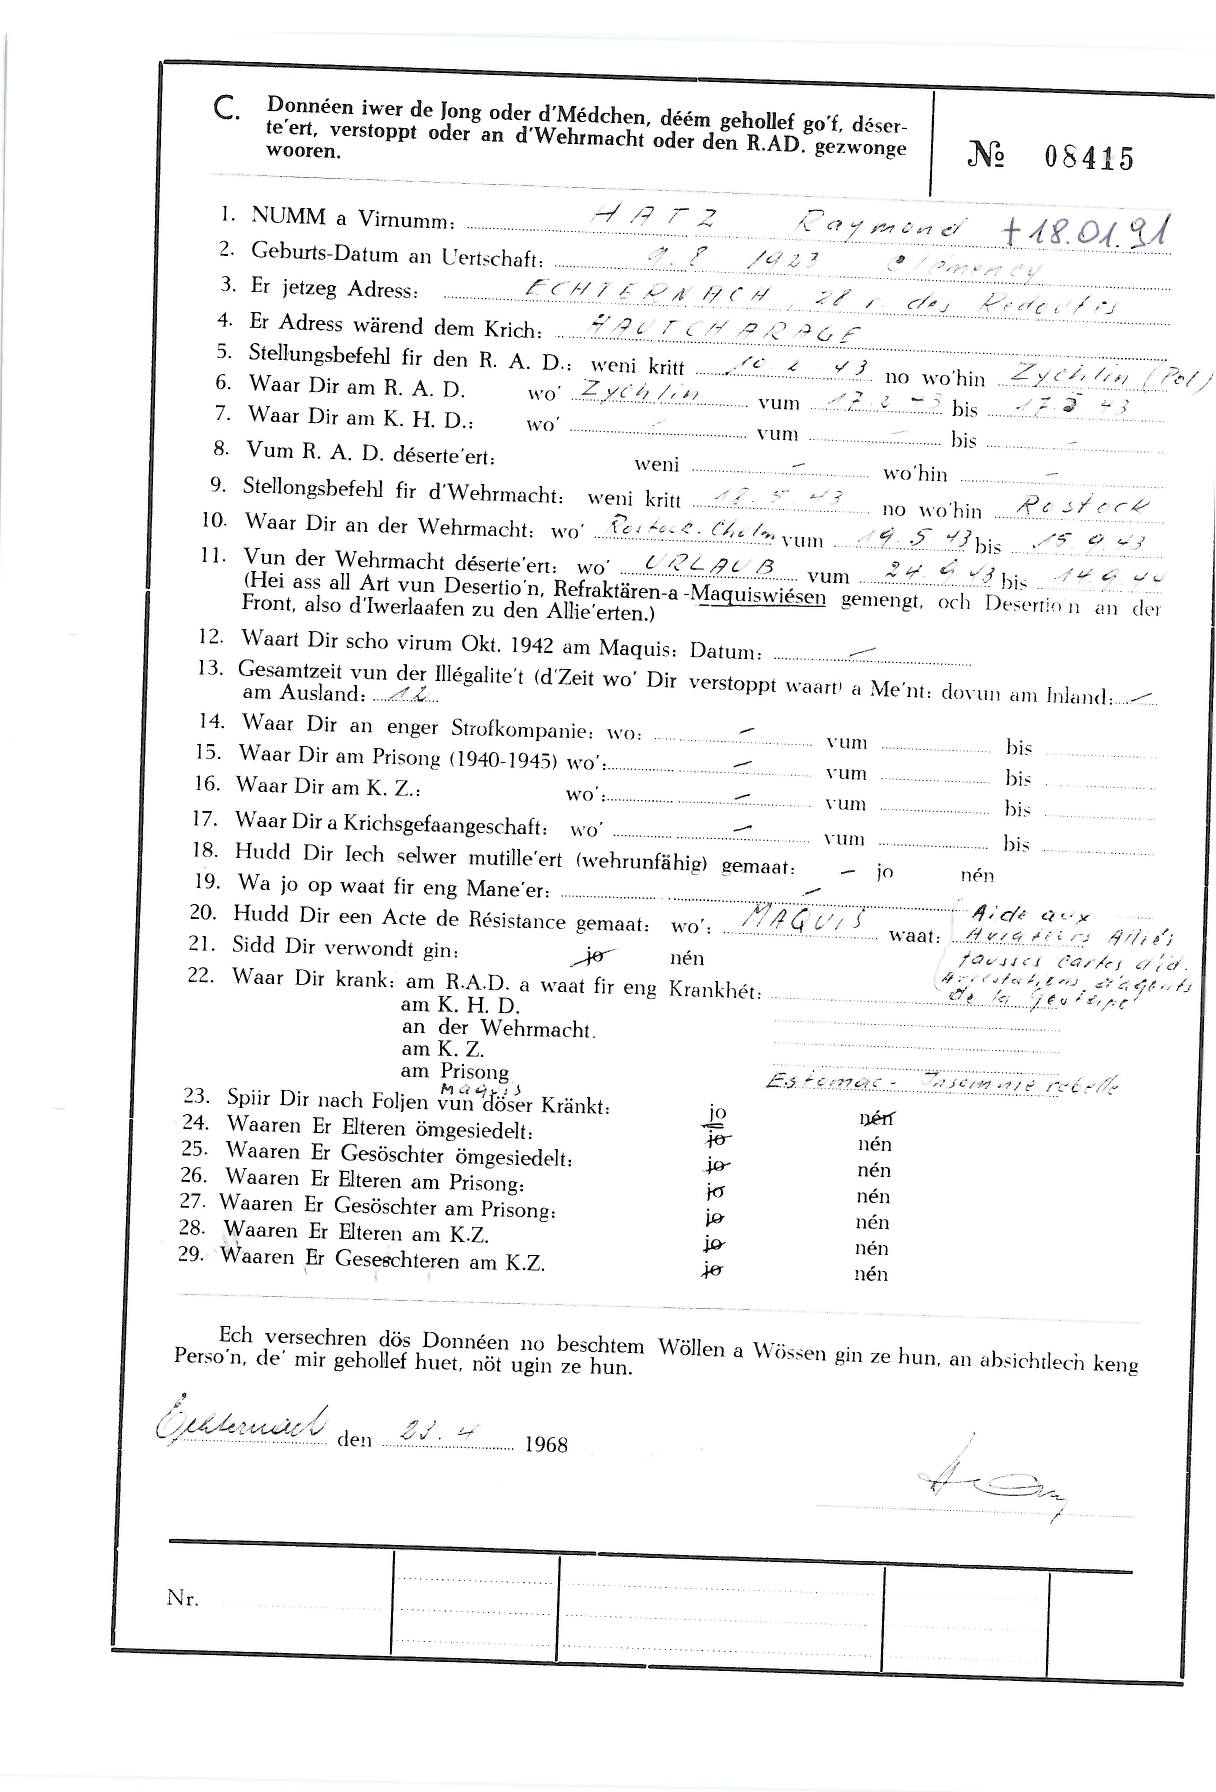 C. Donnéen iwer de Jong oder d'Médchen, déém gehollef go'f, déser-
te'ert, verstoppt oder an d'Wehrmacht oder den R.AD. gezwonge
wooren.
№ 08415
1. NUMM a Virnumm: HATZ Raymond †18.01.91
2. Geburts-Datum an Uertschaft: 9.8 1923 Clémency
3. Er jetzeg Adress: ECHTERNACH, 28 r. des Redoutes
4. Er Adress wärend dem Krich: HAUTCHARAGE
5. Stellungsbefehl fir den R. A. D.: weni kritt 10 2 43 no wo'hin Zychlin (Pol)
6. Waar Dir am R. A. D. wo' Zychlin vum 17.2 43 bis 17.5 43
7. Waar Dir am K. H. D.: wo' – vum – bis –
8. Vum R. A. D. déserte'ert: weni – wo'hin –
9. Stellongsbefehl fir d'Wehrmacht: weni kritt 18.5 43 no wo'hin Rostock
10. Waar Dir an der Wehrmacht: wo' Rostock. Cholm vum 19.5 43 bis 15.9.43
11. Vun der Wehrmacht déserte'ert: wo' URLAUB vum 24.9 43 bis 14 9.44
(Hei ass all Art vun Desertio'n, Refraktären-a-Maquiswiésen gemengt, och Desertio'n an der
Front, also d'Iwerlaafen zu den Allie'erten.)
12. Waart Dir scho virum Okt. 1942 am Maquis: Datum: –
13. Gesamtzeit vun der Illégalite't (d'Zeit wo' Dir verstoppt waart) a Me'nt: dovun am Inland: –
am Ausland: 12
14. Waar Dir an enger Strofkompanie: wo: – vum bis
15. Waar Dir am Prisong (1940-1945) wo': – vum bis
16. Waar Dir am K. Z.: wo': – vum bis
17. Waar Dir a Krichsgefaangeschaft: wo' – vum bis
18. Hudd Dir Iech selwer mutille'ert (wehrunfähig) gemaat: – jo nén
19. Wa jo op waat fir eng Mane'er: –
20. Hudd Dir een Acte de Résistance gemaat: wo': MAQUIS waat: Aide aux
Aviateurs Alliés
21. Sidd Dir verwondt gin: jo nén fausses cartes d'id.
22. Waar Dir krank: am R.A.D. a waat fir eng Krankhét: (Arrestations d'agents
de la Gestapo
am K. H. D.
an der Wehrmacht.
am K. Z.
am Prisong
Maquis Estomac - Insomnie rebelle
23. Spiir Dir nach Foljen vun döser Kränkt: jo nén
24. Waaren Er Elteren ömgesiedelt: jo nén
25. Waaren Er Gesöschter ömgesiedelt: jo nén
26. Waaren Er Elteren am Prisong: jo nén
27. Waaren Er Gesöschter am Prisong: jo nén
28. Waaren Er Elteren am K.Z. jo nén
29. Waaren Er Geseschteren am K.Z. jo nén
Ech versechren dös Donnéen no beschtem Wöllen a Wössen gin ze hun, an absichtlech keng
Perso'n, de' mir gehollef huet, nöt ugin ze hun.
Echternach den 23. 4 1968
Nr.